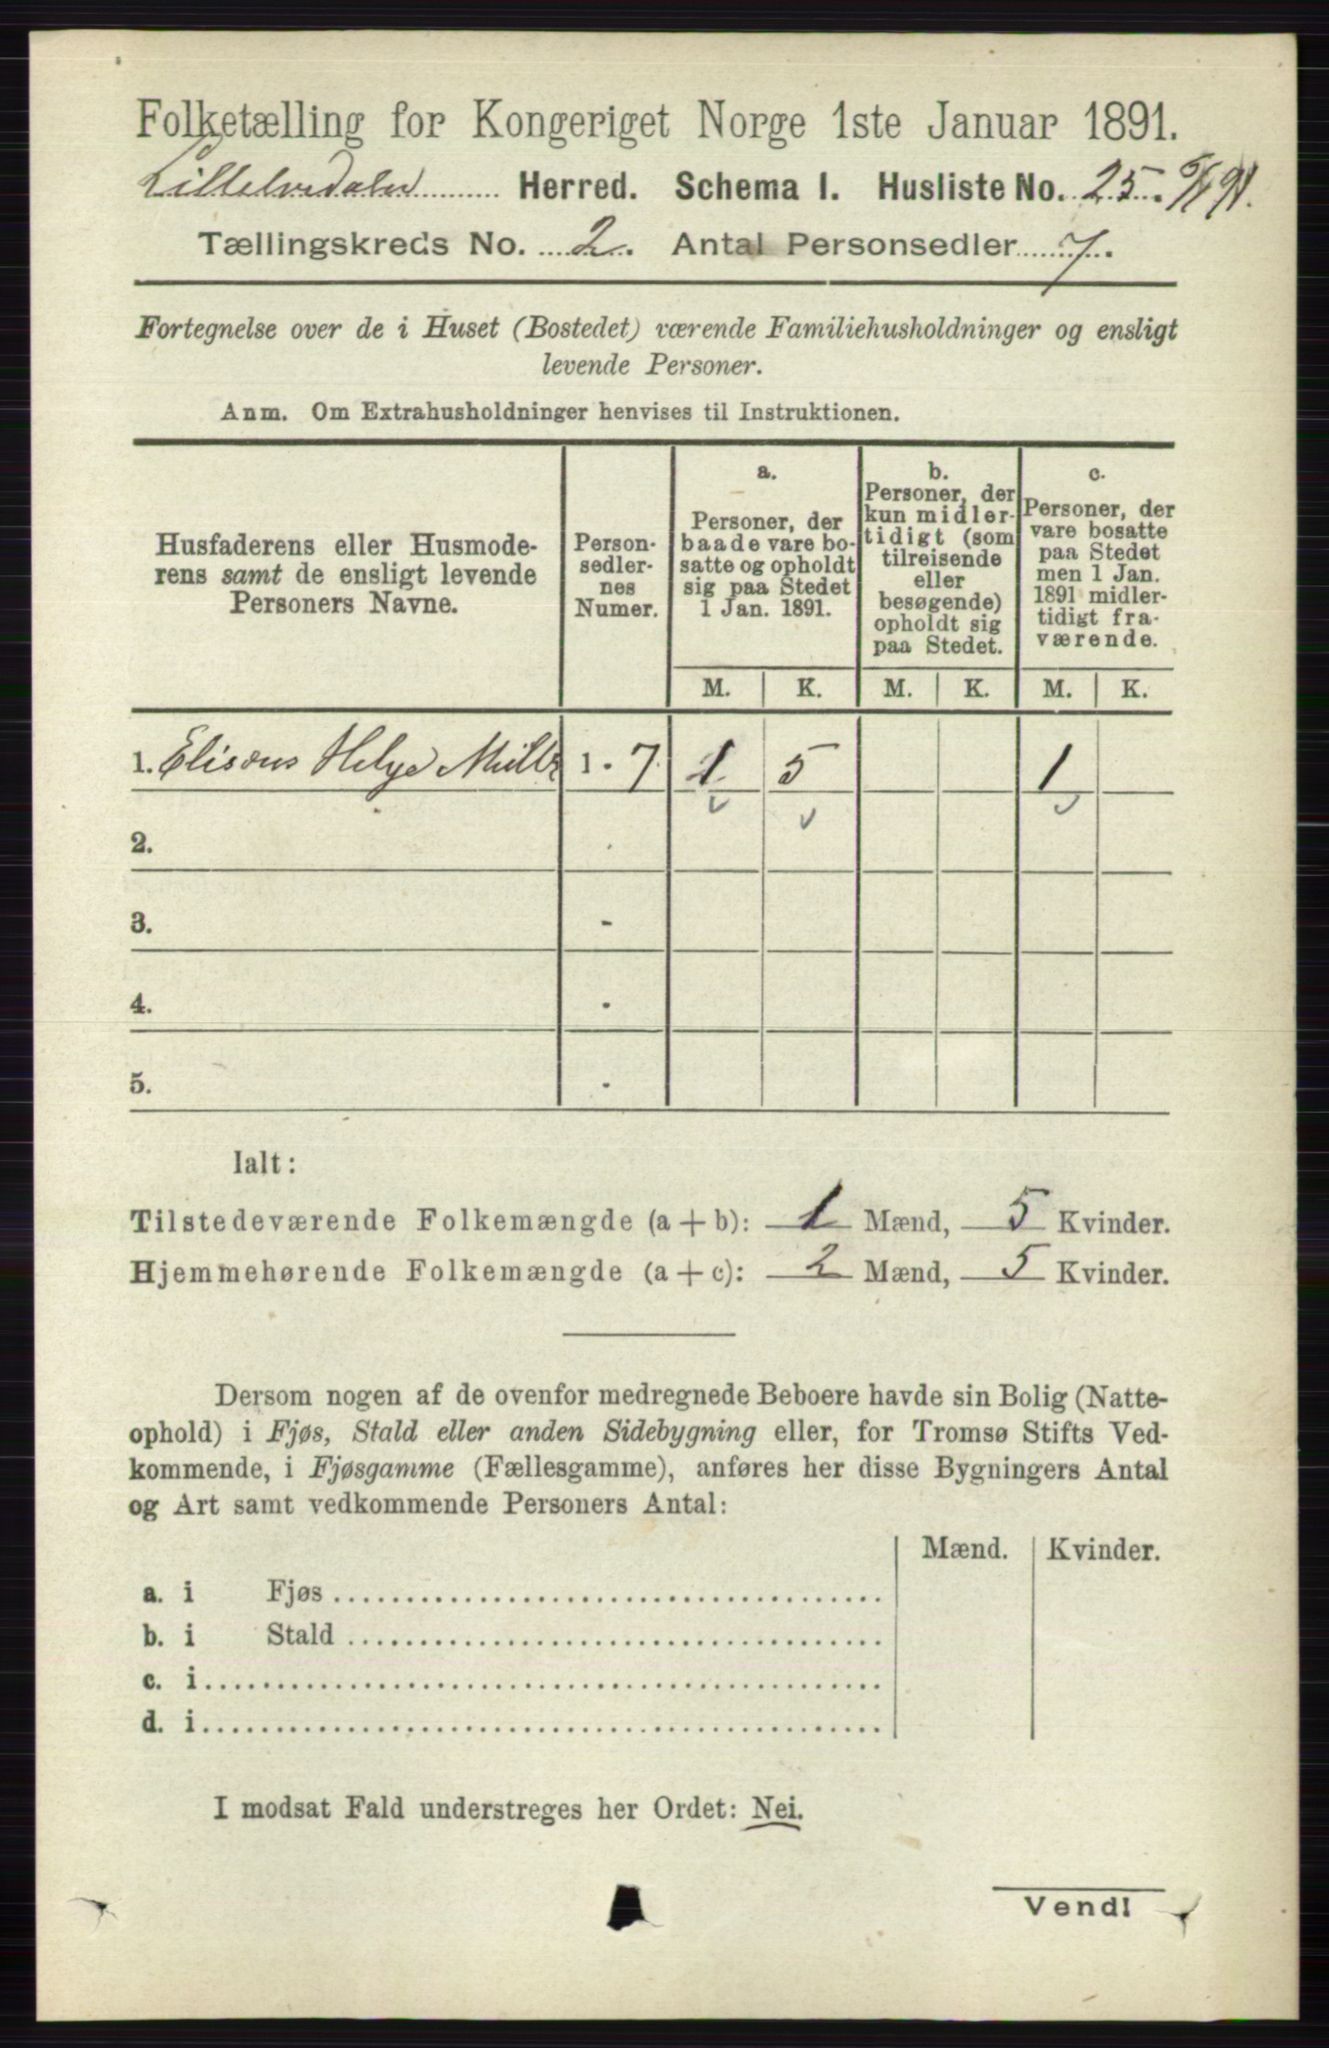 Folketælling for Kongeriget Norge 1ste Januar 1891.
Lilleelvedalen Herred. Schema 1. Husliste No. 25.
Tællingskreds No. 2. Antal Personsedler 7.
Fortegnelse over de i Huset (Bostedet) værende Familiehusholdninger og ensligt
levende Personer.
Anm. Om Extrahusholdninger henvises til Instruktionen.
Husfaderens eller Husmode-
rens samt de ensligt levende
Personers Navne.
Person-
sedler-
nes
Numer.
a.
Personer, der
baade vare bo-
satte og opholdt
sig paa Stedet
1 Jan. 1891.
b.
Personer, der
kun midler-
tidigt (som
tilreisende
eller
besøgende)
opholdt sig
paa Stedet.
c.
Personer, der
vare bosatte
paa Stedet
men 1 Jan.
1891 midler-
tidigt fra-
værende.
M. K. M. K. M. K.
1. Elisæus Helge Müller 1 - 7 1 5 1
2. -
3. -
4. -
5. -
Ialt:
Tilstedeværende Folkemængde (a + b): 1 Mænd, 5 Kvinder.
Hjemmehørende Folkemængde (a + c): 2 Mænd, 5 Kvinder.
Dersom nogen af de ovenfor medregnede Beboere havde sin Bolig (Natte-
ophold) i Fjøs, Stald eller anden Sidebygning eller, for Tromsø Stifts Ved-
kommende, i Fjøsgamme (Fællesgamme), anføres her disse Bygningers Antal
og Art samt vedkommende Personers Antal:
Mænd. Kvinder.
a. i Fjøs
b. i Stald
c. i
d. i
I modsat Fald understreges her Ordet: Nei.
Vend!